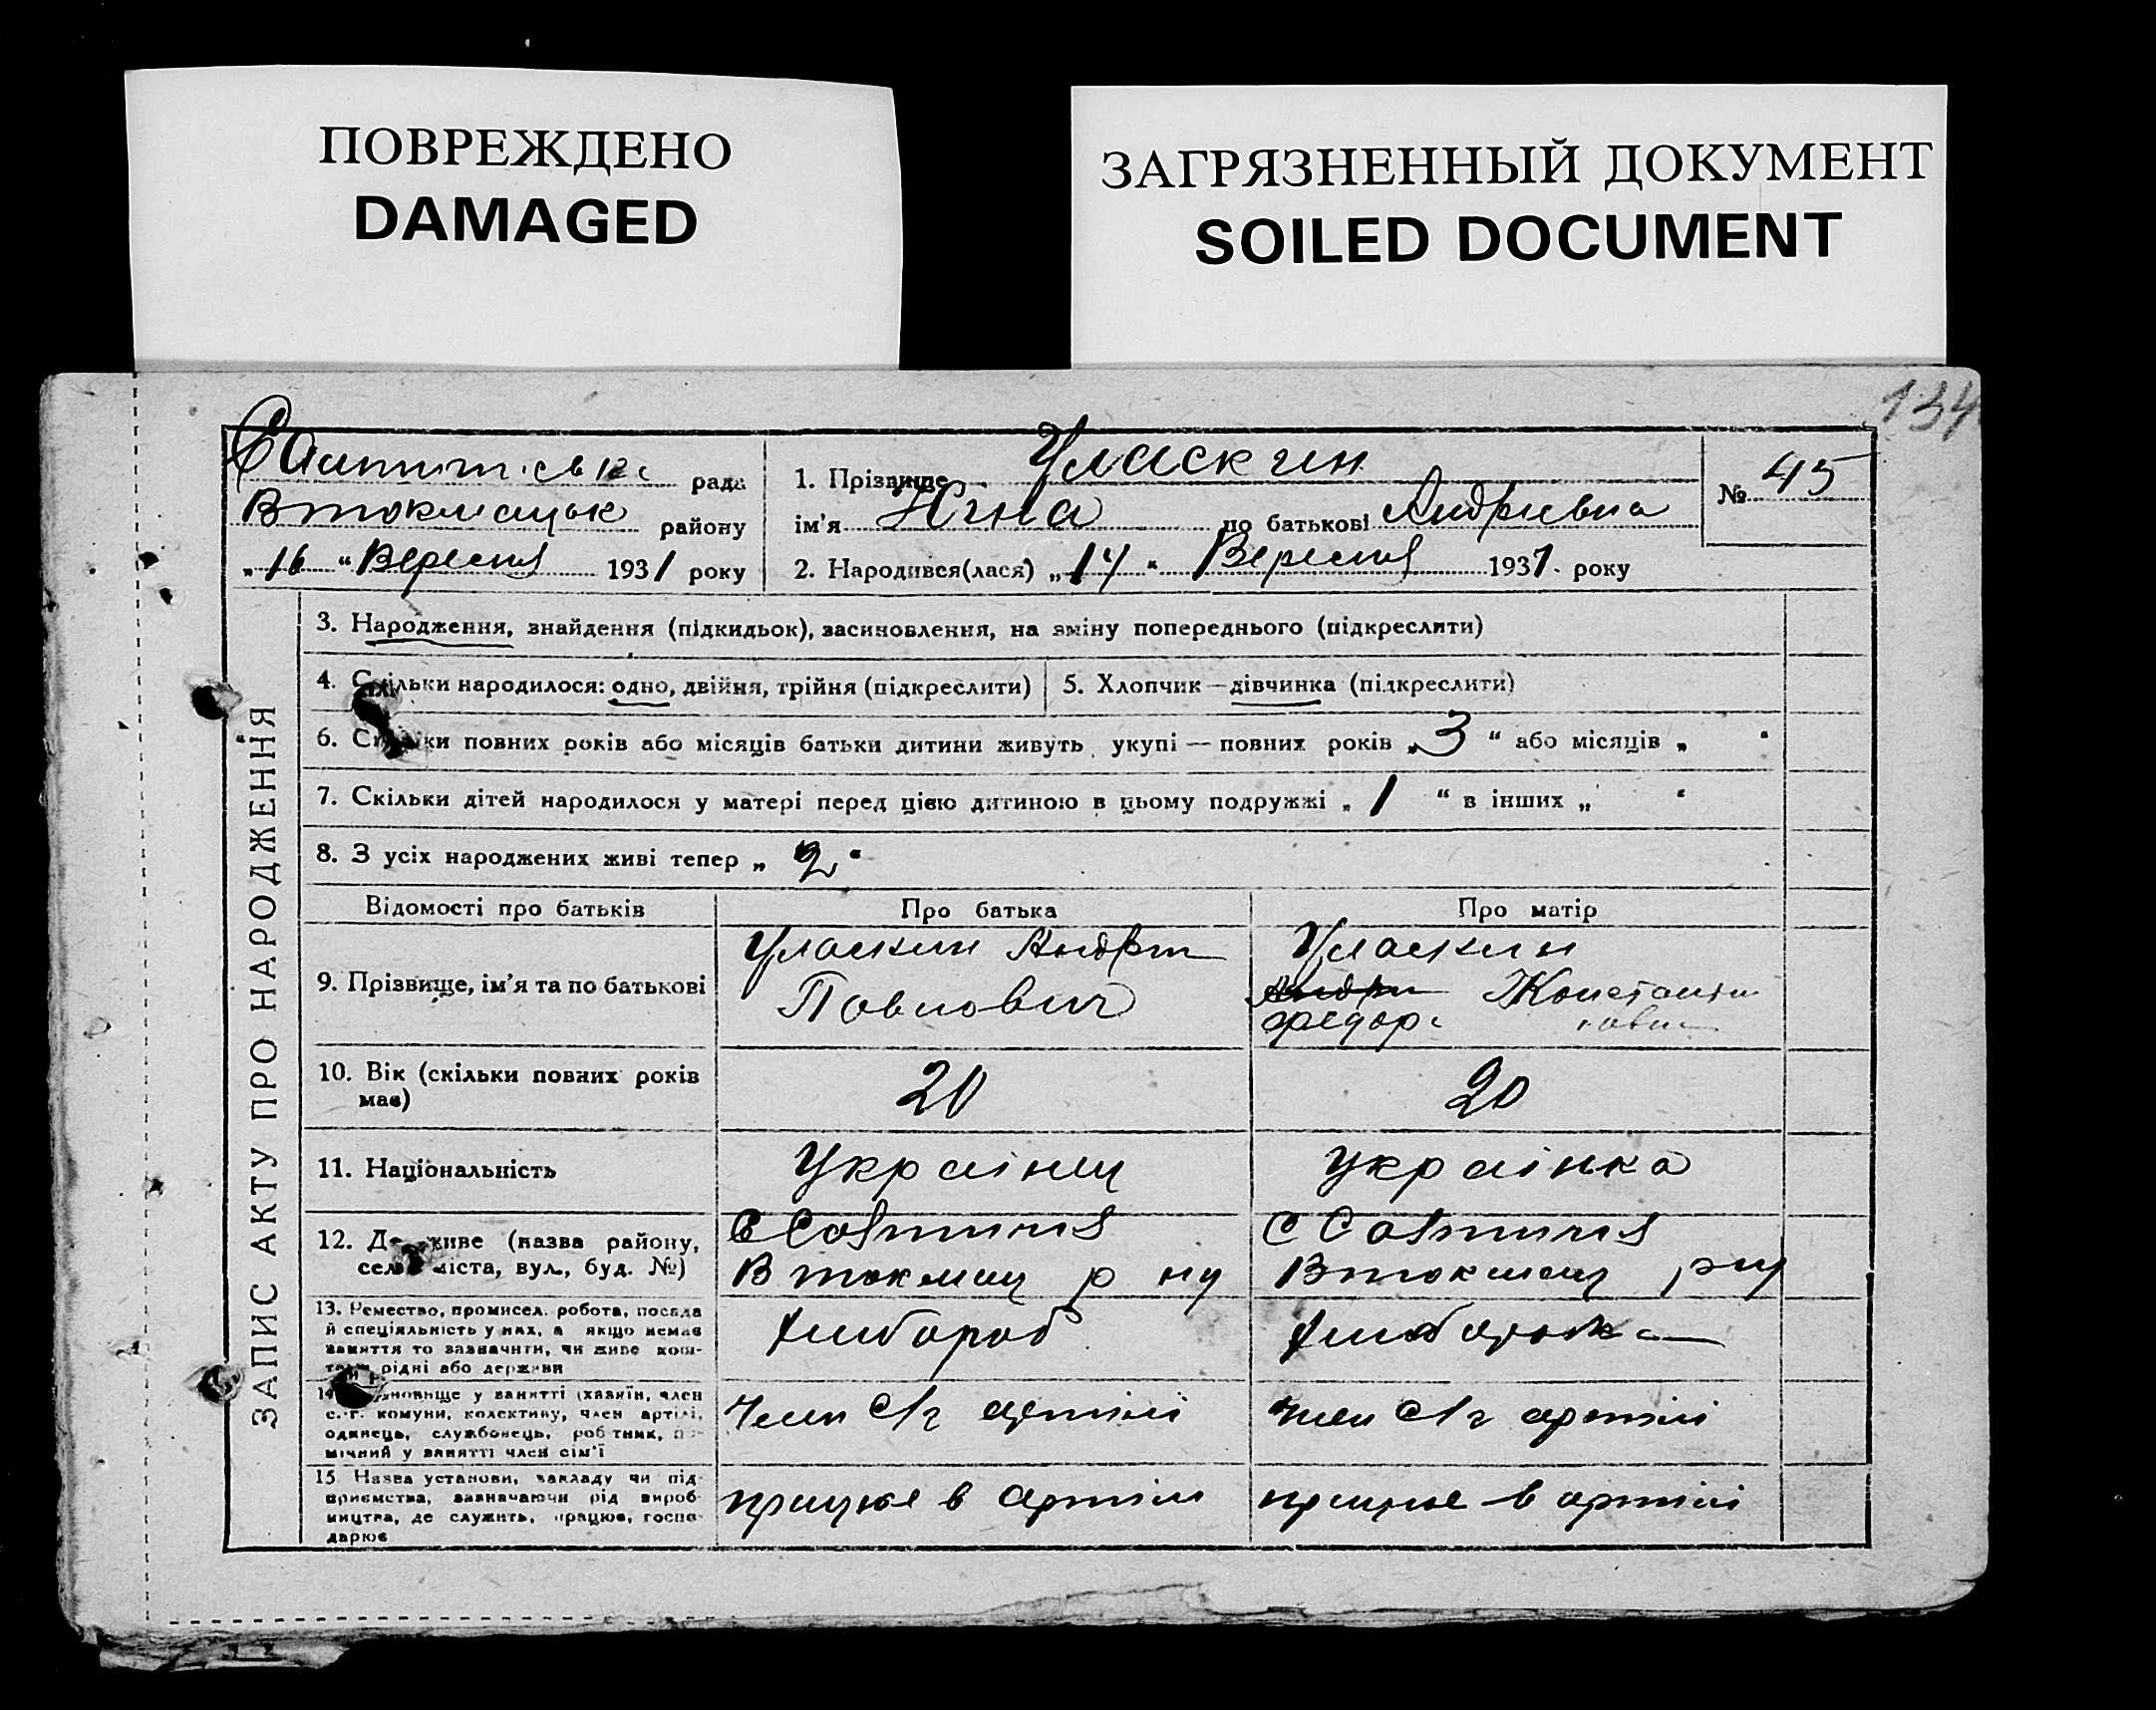 ПОВРЕЖДЕНО
DAMAGED
ЗАГРЯЗНЕННЫЙ ДОКУМЕНТ
SOILED DOCUMENT
134
рада
Втокмацьк району
„16“ Вересня 1931 року
1. Прізвище Уласкин
ім’я Ніна по батькові Андрієвна
№ 45
2. Народився(лася) „14“ Вересня 1931 року
ЗАПИС АКТУ ПРО НАРОДЖЕННЯ
3. Народження, знайдення (підкидьок), засиновлення, на зміну попереднього (підкреслити)
4. Скільки народилося: одно, двійня, трійня (підкреслити)
5. Хлопчик — дівчинка (підкреслити)
6. Скільки повних років або місяців батьки дитини живуть укупі — повних років „3“ або місяців „ “
7. Скільки дітей народилося у матері перед цією дитиною в цьому подружжі „1“ в інших „ “
8. З усіх народжених живі тепер „2“
Відомості про батьків
Про батька
Про матір
9. Прізвище, ім’я та по батькові
Уласкин Андрій
Павлович
Уласкин
10. Вік (скільки повних років
має)
20
20
11. Національність
Українец
Українка
12. Де живе (назва району,
село, міста, вул., буд. №)
Втокмац р ну
Втокмац рну
13. Ремество, промисел, робота, посада
й спеціяльність у них, а якщо немає
заняття то зазначити, чи живе кош-
тами рідні або держави
Хлібороб
Хліборобка
14. Становище у занятті (хазяїн, член
с.-г. комуни, колективу, член артілі,
одинець, службовець, робітник, по-
мічний у занятті член сім’ї
Член С/г артілі
член С/г артілі
15. Назва установи, закладу чи під-
приємства, зазначаючи рід вироб-
ництва, де служить, працює, госпо-
дарює
працює в артілі
працює в артілі